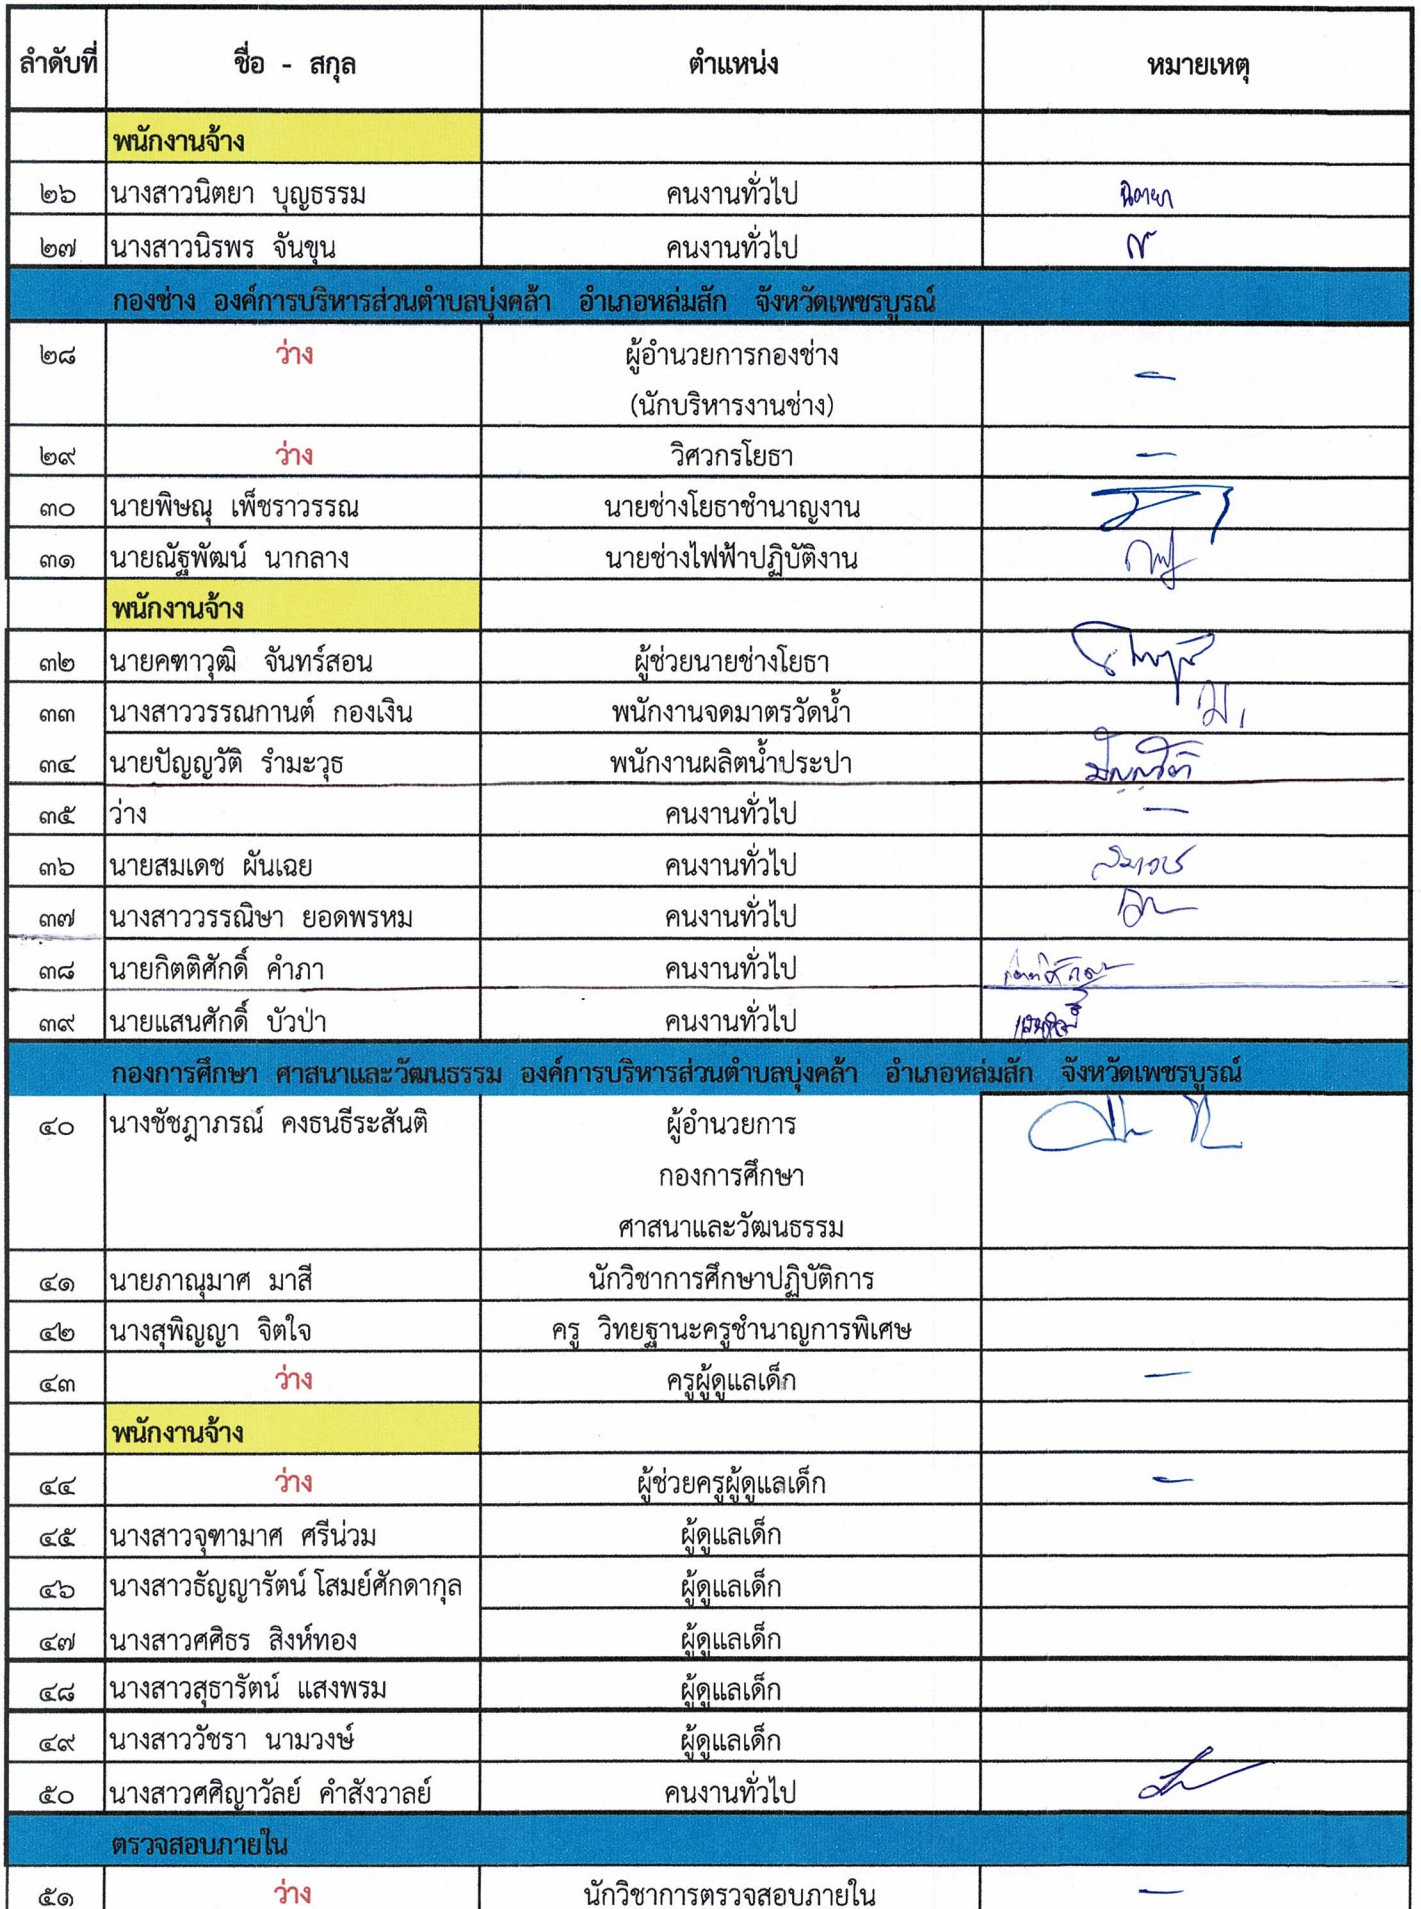 ลำดับที่ ชื่อ - สกุล ตำแหน่ง หมายเหตุ
พนักงานจ้าง
๒๖ นางสาวนิตยา บุญธรรม คนงานทั่วไป นิตยา
๒๗ นางสาวนิรพร จันขุน คนงานทั่วไป
กองช่าง องค์การบริหารส่วนตำบลบุ่งคล้า อำเภอหล่มสัก จังหวัดเพชรบูรณ์
๒๘ ว่าง ผู้อำนวยการกองช่าง –
(นักบริหารงานช่าง)
๒๙ ว่าง วิศวกรโยธา –
๓๐ นายพิษณุ เพ็ชราวรรณ นายช่างโยธาชำนาญงาน
๓๑ นายณัฐพัฒน์ นากลาง นายช่างไฟฟ้าปฏิบัติงาน
พนักงานจ้าง
๓๒ นายคฑาวุฒิ จันทร์สอน ผู้ช่วยนายช่างโยธา
๓๓ นางสาววรรณกานต์ กองเงิน พนักงานจดมาตรวัดน้ำ
๓๔ นายปัญญวัติ รำมะวุธ พนักงานผลิตน้ำประปา ปัญญวัติ
๓๕ ว่าง คนงานทั่วไป –
๓๖ นายสมเดช ผันเฉย คนงานทั่วไป สมเดช
๓๗ นางสาววรรณิษา ยอดพรหม คนงานทั่วไป
๓๘ นายกิตติศักดิ์ คำภา คนงานทั่วไป กิตติศักดิ์
๓๙ นายแสนศักดิ์ บัวป่า คนงานทั่วไป แสนศักดิ์
กองการศึกษา ศาสนาและวัฒนธรรม องค์การบริหารส่วนตำบลบุ่งคล้า อำเภอหล่มสัก จังหวัดเพชรบูรณ์
๔๐ นางชัชฎาภรณ์ คงธนธีระสันติ ผู้อำนวยการ
กองการศึกษา
ศาสนาและวัฒนธรรม
๔๑ นายภาณุมาศ มาสี นักวิชาการศึกษาปฏิบัติการ
๔๒ นางสุพิญญา จิตใจ ครู วิทยฐานะครูชำนาญการพิเศษ
๔๓ ว่าง ครูผู้ดูแลเด็ก –
พนักงานจ้าง
๔๔ ว่าง ผู้ช่วยครูผู้ดูแลเด็ก –
๔๕ นางสาวจุฑามาศ ศรีน่วม ผู้ดูแลเด็ก
๔๖ นางสาวธัญญารัตน์ โสมย์ศักดากุล ผู้ดูแลเด็ก
๔๗ นางสาวศศิธร สิงห์ทอง ผู้ดูแลเด็ก
๔๘ นางสาวสุธารัตน์ แสงพรม ผู้ดูแลเด็ก
๔๙ นางสาววัชรา นามวงษ์ ผู้ดูแลเด็ก
๕๐ นางสาวศศิญาวัลย์ คำสังวาลย์ คนงานทั่วไป
ตรวจสอบภายใน
๕๑ ว่าง นักวิชาการตรวจสอบภายใน –